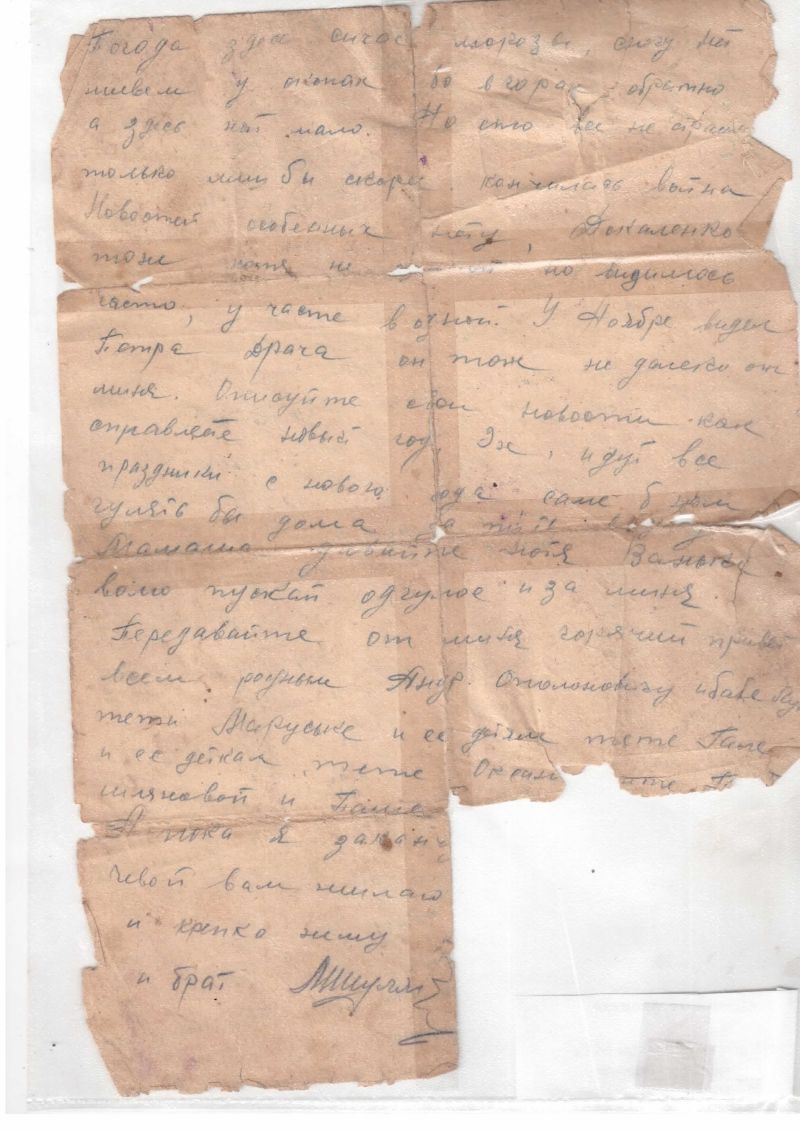 Погода здес сичас морозы, снегу нет
живем у окопах бо в горах обратно
а здесь их мало. Но ето все не страш
только лиш бы скорей кончилась война
Новостей особенных нету, Докаленко
тоже хотя не но видимось
часто, у часте в одной. У Ноябре видел
Петра Драча он тож не далеко от
миня. Опишуйте свои новости как
справляете новый год. Эх, идут все
праздники с нового года саме б нам
гулять бы дома
Мамаша давайте хотя Ваньке
волю пускай одгуляе и за миня.
Передавайте от миня горячий привет
всем родным Андр. Ополоновичу и бабе
тети Маруське и ее детям тете Гале
и ее деткам, тете Оксане
шляховой и
А пока я заканч
чевой вам жилаю
и крепко жму
и брат